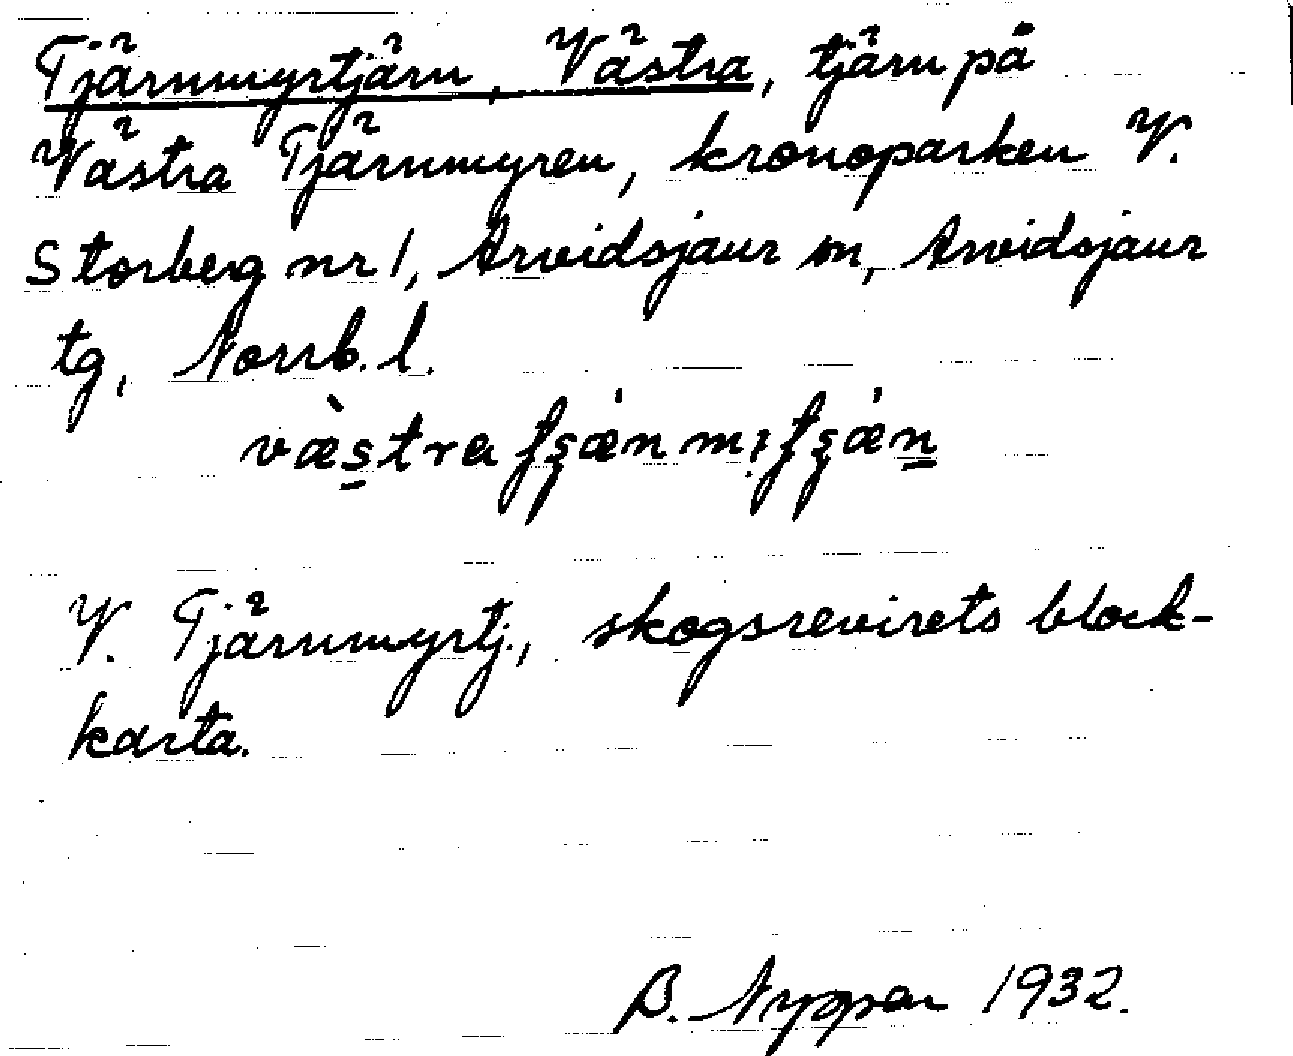 Tjärnmyrtjärn, Västra, tjärn på
Västra Tjärnmyren, kronoparken V.
Storberg nr 1, Arvidsjaur sn, Arvidsjaur
tg, Norrb. l.
västra
V. Tjärnmyrtj., skogsrevirets block-
karta.
B. Nyppen 1932.